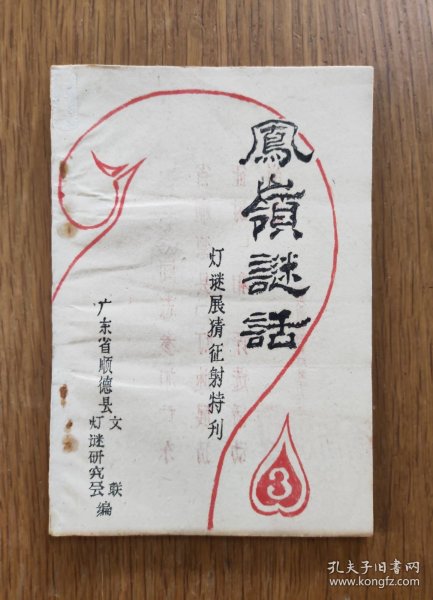 鳳嶺謎話
灯谜展猜征射特刊
广东省顺德县文联
灯谜研究会编
3
孔夫子旧书网
www.kongfz.com